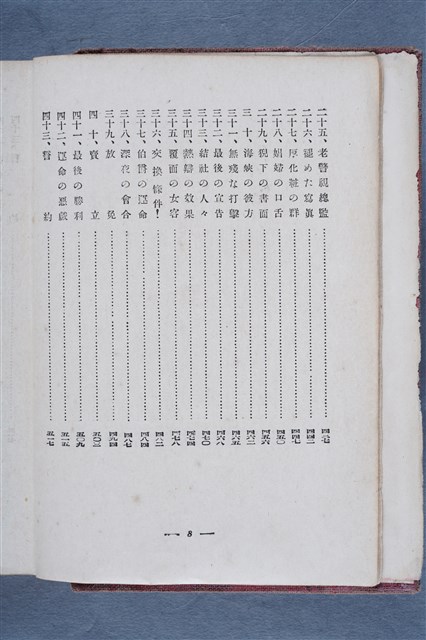 二十五、老警視總監……四三七
二十六、褪めた寫眞……四四二
二十七、厚化粧の群……四四七
二十八、娼婦の口舌……四五〇
二十九、靴下の書面……四五六
三十、海峽の彼方……四六二
三十一、無殘な打擊……四六五
三十二、最後の宣告……四六八
三十三、結社の人々……四七〇
三十四、熱辯の效果……四七四
三十五、覆面の女客……四七八
三十六、交換條件！……四八二
三十七、伯爵の運命……四八四
三十八、深夜の會合……四八七
三十九、放免……四九四
四十、賣立……五〇三
四十一、最後の勝利……五〇九
四十二、運命の惡戲……五一五
四十三、誓約……五一七
— 8 —